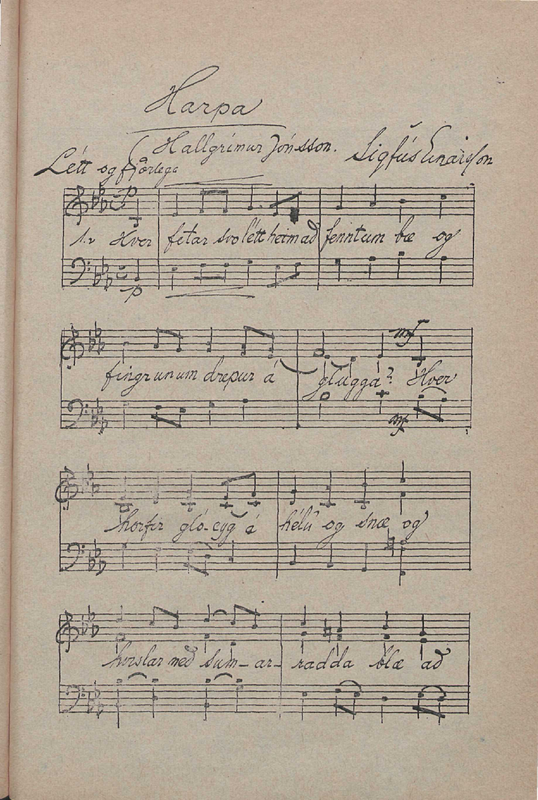 Harpa
(Hallgrímur Jónsson. Sigfús Einarsson
Létt og fjörlega
p
1. Hver fetar svo létt heim að fenntum bæ og
p
mf
fingrunum drepur á glugga? Hver
mf
horfir gló-eyg á hélu og snæ og
hvíslar með sum-ar-radda blæ að